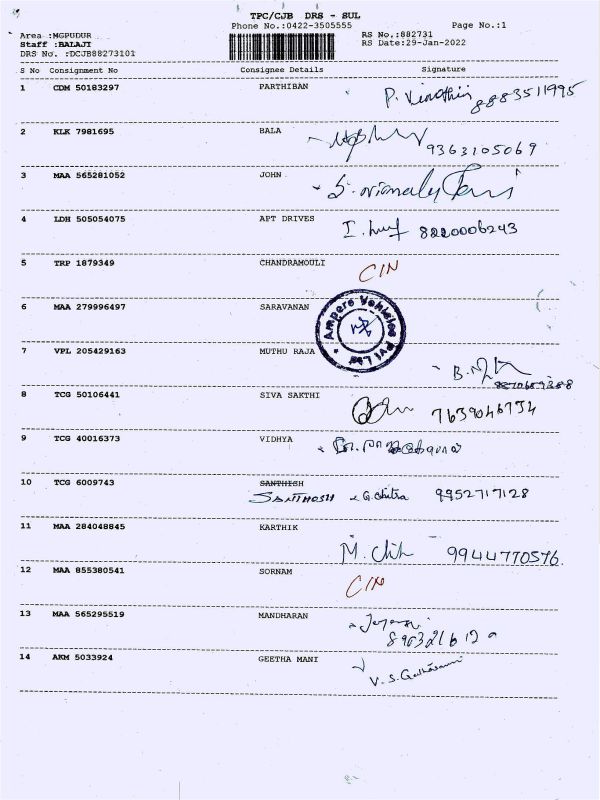 TPC/CJB DRS - SUL
Phone No.:0422-3505555 Page No.:1
Area :MGPUDUR RS No.:882731
Staff :BALAJI RS Date:29-Jan-2022
DRS No. :DCJB88273101
S No Consignment No Consignee Details Signature
1 CDM 50183297 PARTHIBAN P. 8883511995
2 KLK 7981695 BALA 9363105069
3 MAA 565281052 JOHN
4 LDH 505054075 APT DRIVES 8220006243
5 TRP 1879349 CHANDRAMOULI CIN
6 MAA 279996497 SARAVANAN
Ampere Vehicles Pvt Ltd
7 VPL 205429163 MUTHU RAJA
8 TCG 50106441 SIVA SAKTHI 7639046734
9 TCG 40016373 VIDHYA
10 TCG 6009743 SANTHISH
SANTHOSH G. Chitra 9952717128
11 MAA 284048845 KARTHIK
M. 9944770576
12 MAA 855380541 SORNAM CIN
13 MAA 565295519 MANDHARAN
14 AKM 5033924 GEETHA MANI
V.S.